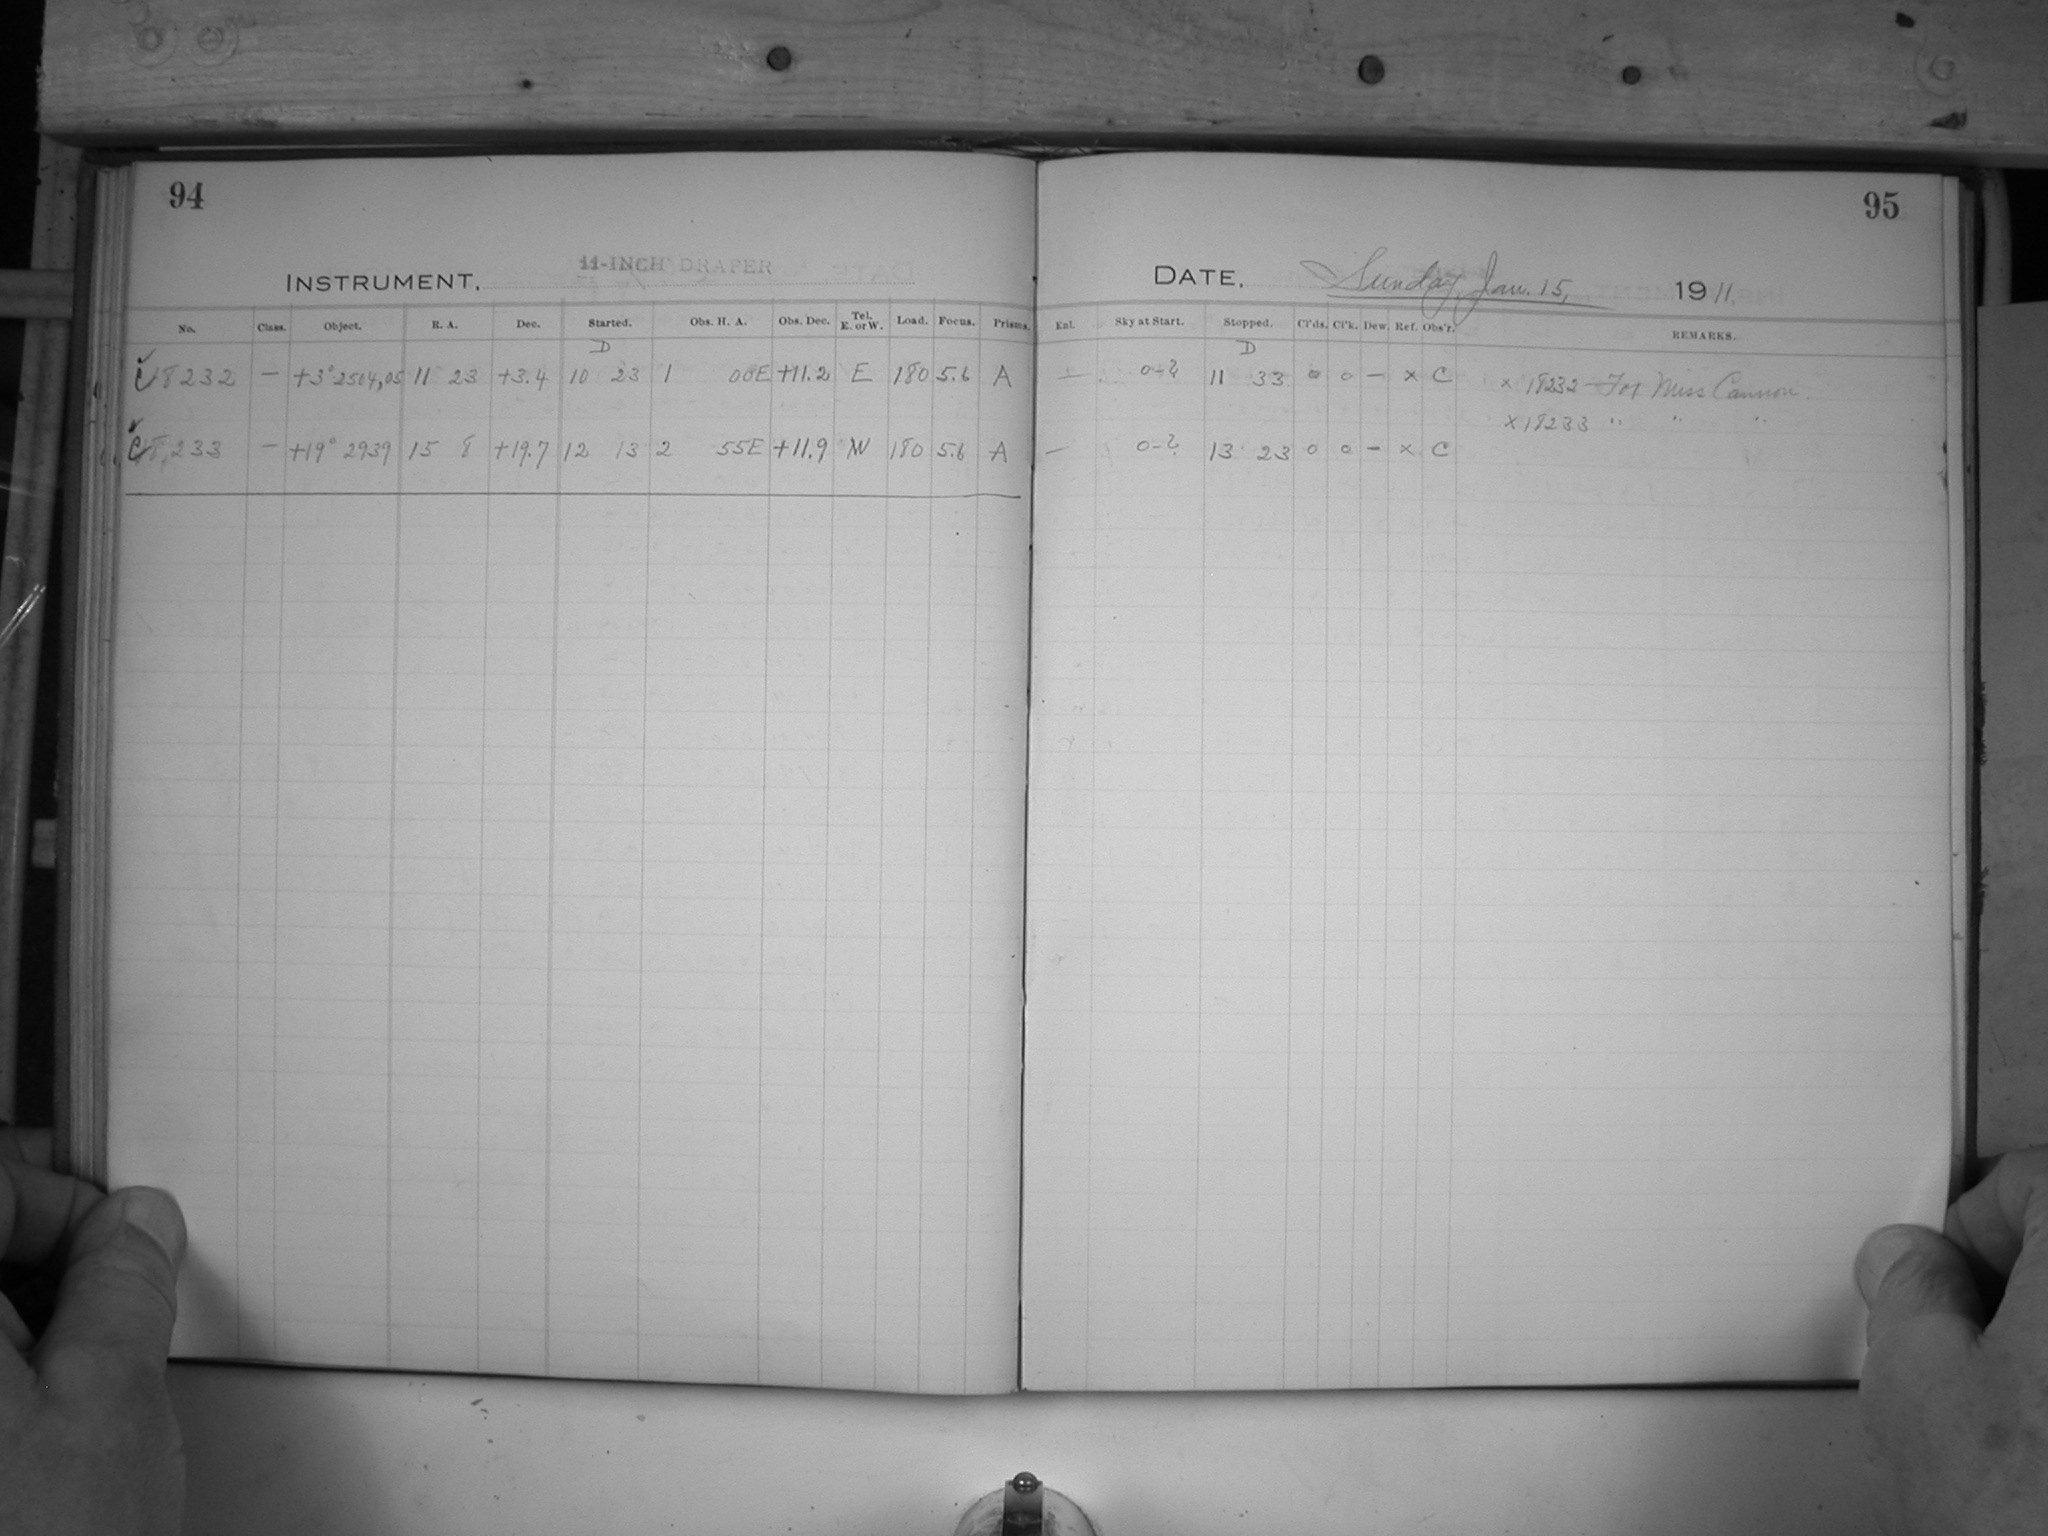 94
INSTRUMENT, 11-INCH DRAPER
No. Class. Object. R. A. Dec. Started. Obs. H. A. Obs. Dec. Tel. E. or W. Load. Focus. Prisms.
D
18232 — +3° 2504,05 11 23 +3.4 10 23 1 00E +11.2 E 180 5.6 A
18,233 — +19° 2939 15 8 +19.7 12 13 2 55E +11.9 W 180 5.6 A
95
DATE, Sunday, Jan. 15, 1911.
Enl. Sky at Start. Stopped. Cl'ds. Cl'k. Dew. Ref. Obs'r. REMARKS.
D
— 0-2 11 33 0 0 — x C x 18232 For Miss Cannon.
x 18233 " " "
— 0-2 13 23 0 0 — x C